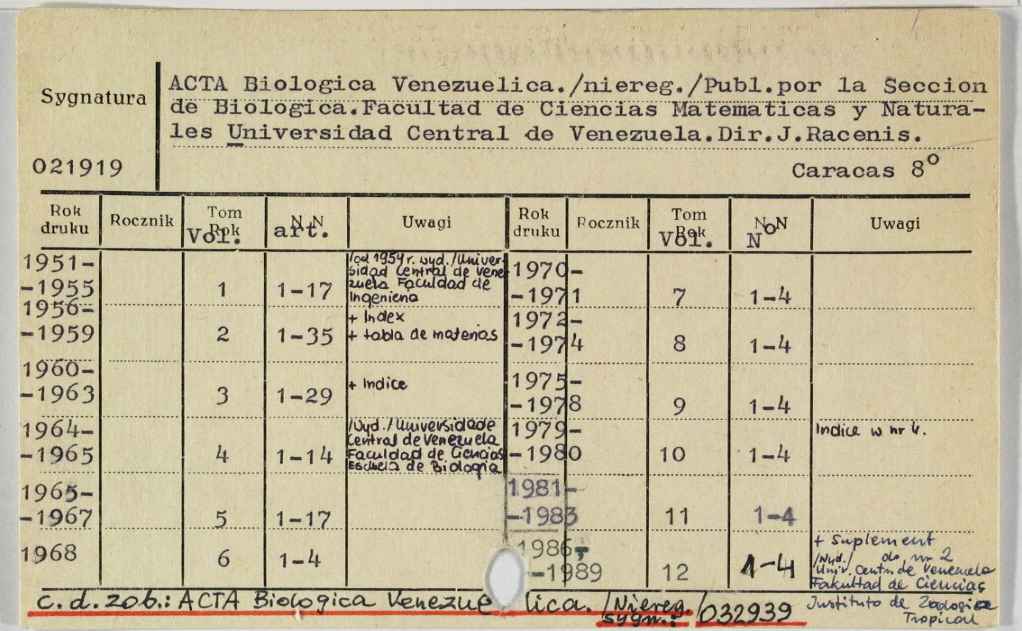 Sygnatura
ACTA Biologica Venezuelica./niereg./Publ.por la Seccion
de Biologica.Facultad de Ciencias Matematicas y Natura-
les Universidad Central de Venezuela.Dir.J.Racenis.
021919
Caracas 8°
Rok druku Rocznik Tom Rok Vol. N N art. Uwagi Rok druku Rocznik Tom Rok Vol. N N No Uwagi
1951-
-1955 1 1-17
/od 1959 r. wyd./Univer-
sidad Central de Vene
zuela Faculdad de
Ingeniena
1970-
-1971 7 1-4
1956-
-1959 2 1-35
+ Index
+ tabla de materias
1972-
-1974 8 1-4
1960-
-1963 3 1-29 + Indice
1975-
-1978 9 1-4
1964-
-1965 4 1-14
/Wyd./Universidade
Central de Venezuela
Faculdad de Ciencias
Escuela de Biologia
1979-
-1980 10 1-4 Indice w nr 4.
1965-
-1967 5 1-17
1981-
-1983 11 1-4
1968 6 1-4
1986,
-1989 12 1-4
+ Suplement
/Wyd./ do nr 2
Univ. Centr. de Venezuela
Fakultad de Ciencias
Instituto de Zoologia
Tropical
c.d.zob.: ACTA Biologica Venezuelica. /Niereg./
sygn.: 032939